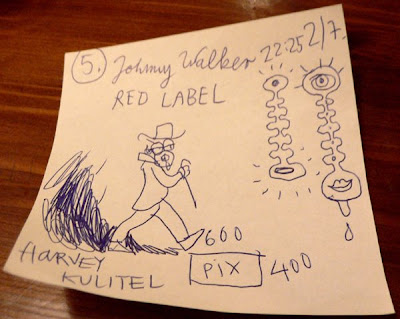 5. Johnny Walker 22:25 2/7.
RED LABEL
600
HARVEY
KULITEL
PIX
400